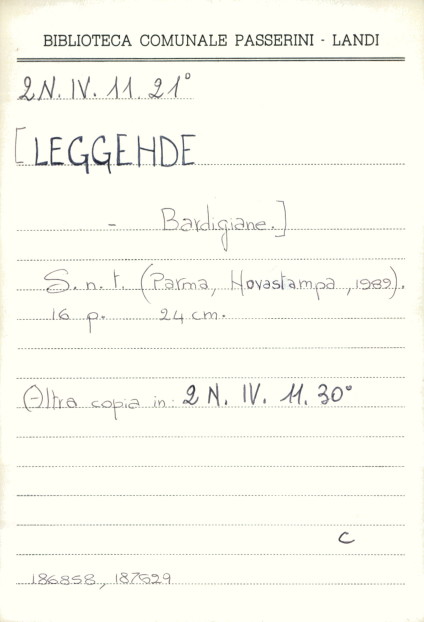 BIBLIOTECA COMUNALE PASSERINI - LANDI
2 N. IV. 11. 21°
[LEGGENDE
- Bardigiane.]
S. n. t. (Parma, Novastampa, 1989).
16 p. 24 cm.
(Altra copia in: 2 N. IV. 11. 30°
C
186858, 187529